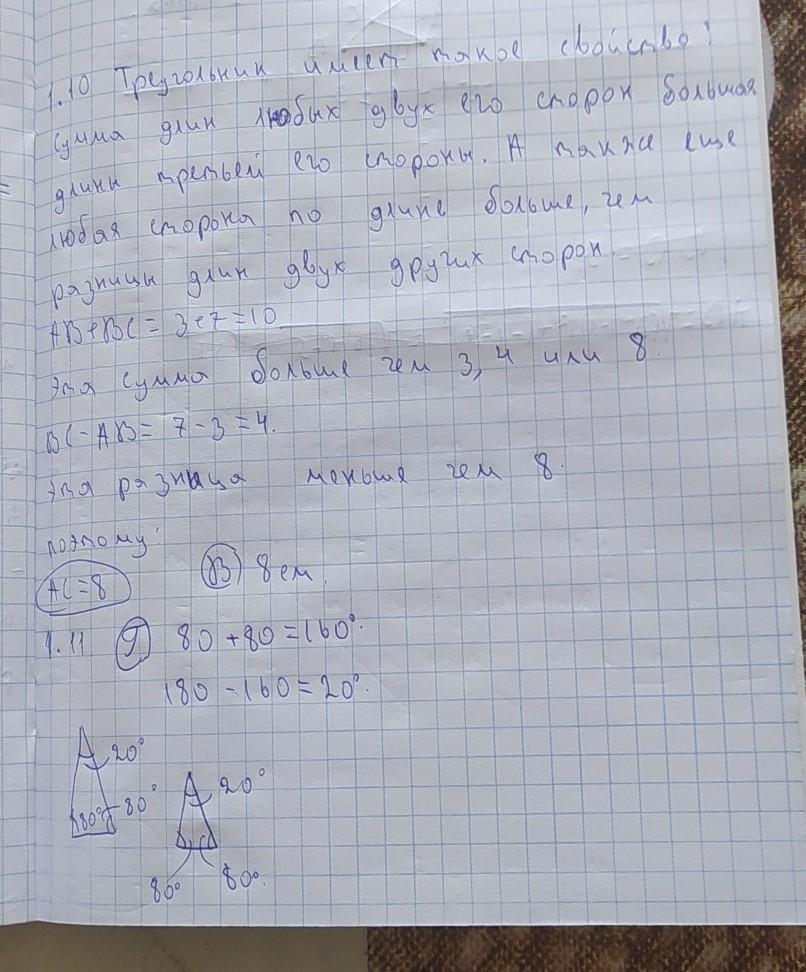 1.10 Треугольник имеет такое свойство:
сумма длин любых двух его сторон большая
длины третьей его стороны. А также еще
любая сторона по длине больше, чем
разницы длин двух других сторон.
AB+BC = 3+7=10
Эта сумма больше чем 3, 4 или 8.
BC-AB= 7-3=4.
Эта разница меньше чем 8.
поэтому:
AC=8 В) 8 см.
1.11 Г) 80+80=160°.
180-160=20°.
20°
80° 80°
20°
80° 80°.